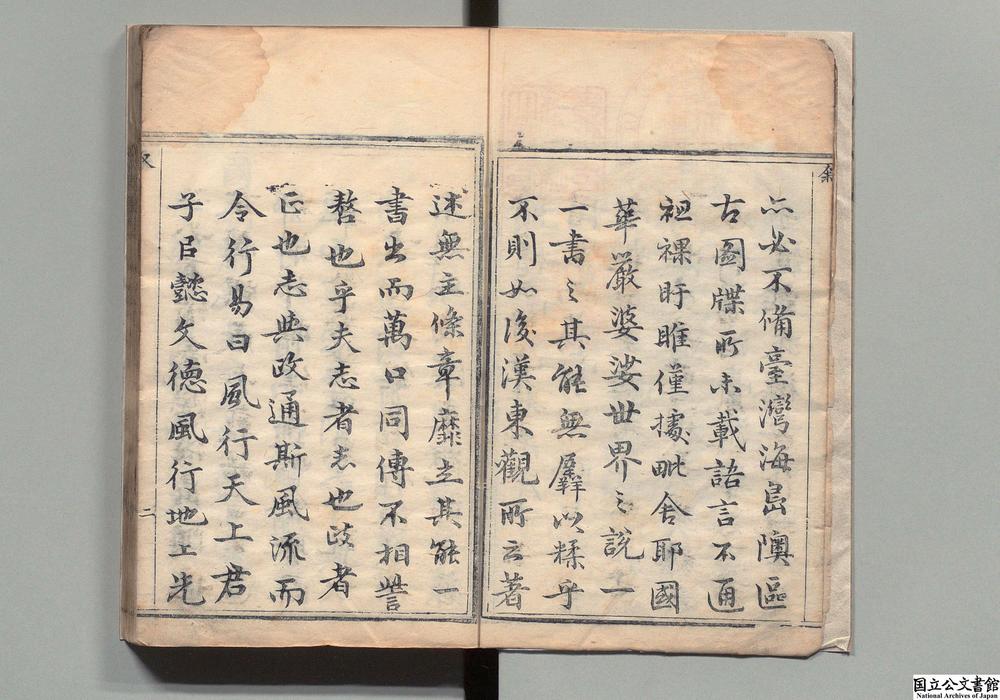 叙
亦必不備臺灣海島隩區
古圖牒所未載語言不通
袒裸盱睢僅據毗舍耶國
華嚴婆娑世界之說一
一書之其能無羼以糅乎
不則如後漢東觀所云著
述無主條章靡立其能一
書出而萬口同傳不相訾
謷也乎夫志者志也政者
正也志與政通斯風流而
令行易曰風行天上君
子以懿文德風行地上先
二
国立公文書館
National Archives of Japan